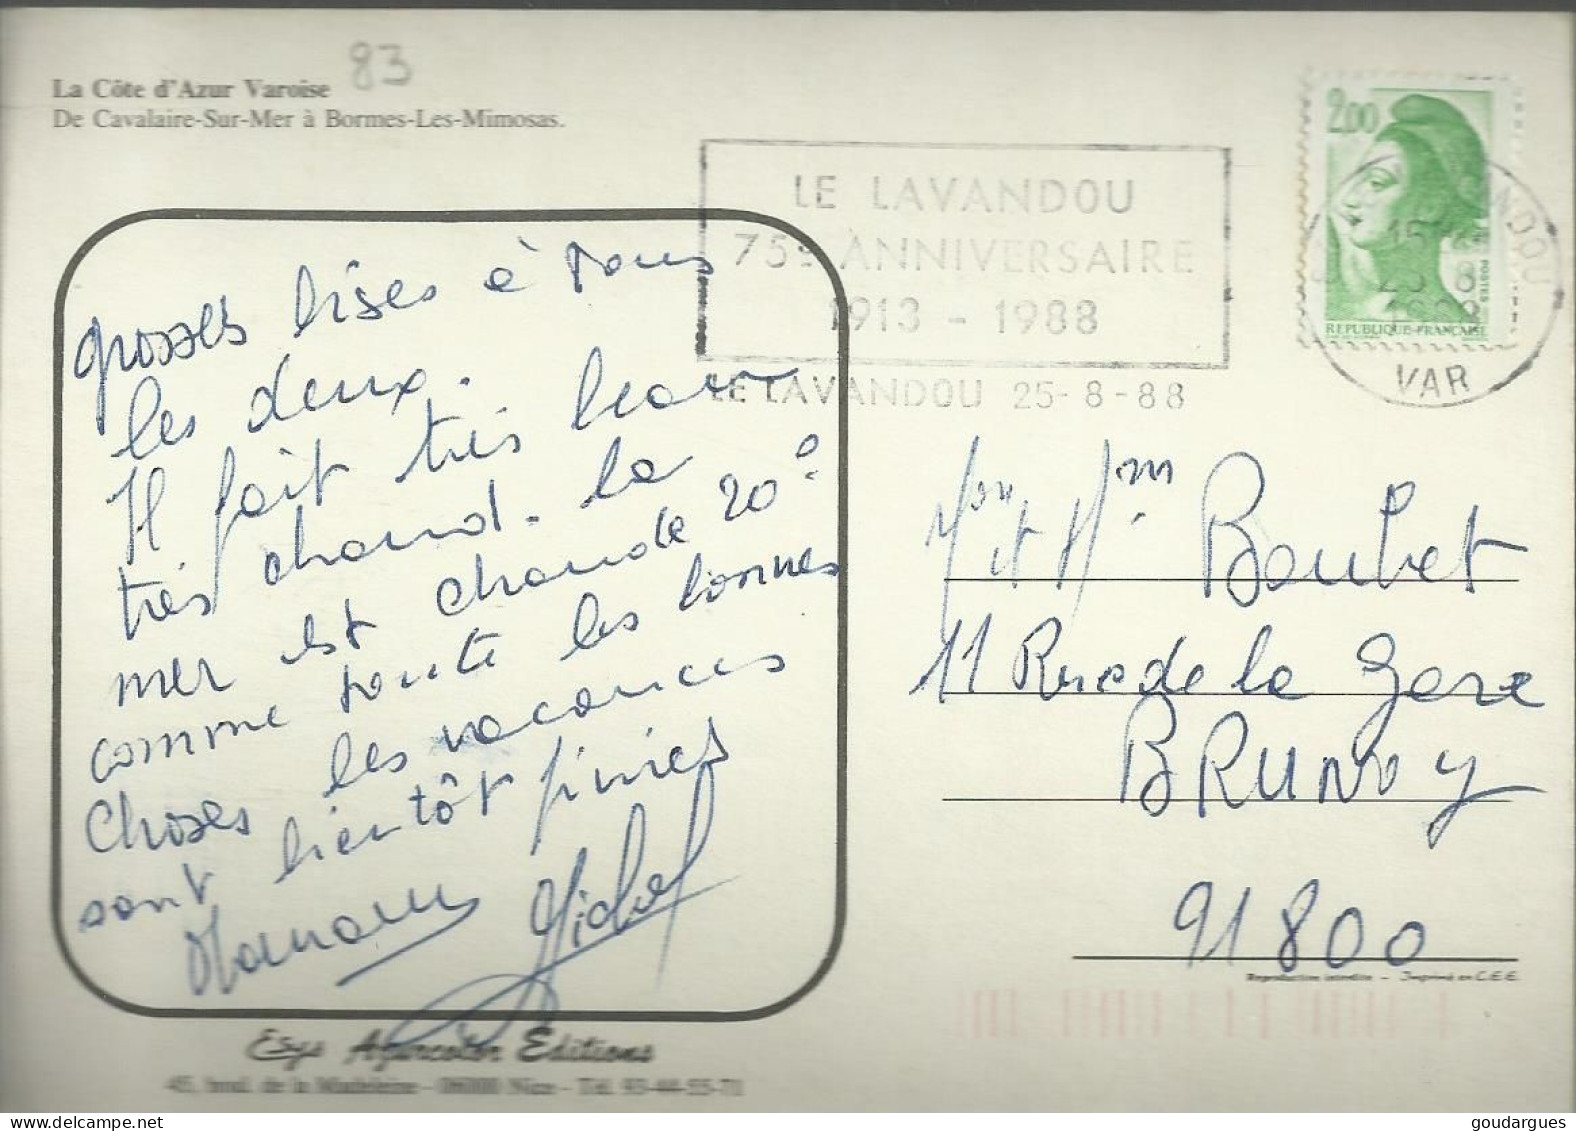 83
La Côte d'Azur Varoise
De Cavalaire-Sur-Mer à Bormes-Les-Mimosas.
LE LAVANDOU
75e ANNIVERSAIRE
1913 - 1988
LE LAVANDOU 25-8-88
2,00
POSTES
REPUBLIQUE-FRANÇAISE
VAR
grosses bises à tous
les deux.
Il fait très beau
très chaud. la
mer est chaude 20°.
comme toute les bonnes
choses les vacances
sont bientôt finies
Maman Michel
Mon et Mme Boubet
11 Rue de la Gare
BRUNOY
91800
Reproduction interdite - Imprimé en C.E.E.
Edys Azurcolor Editions
45, boul. de la Madeleine - 06000 Nice - Tél. 93-44-55-71
goudargues@delcampe.net